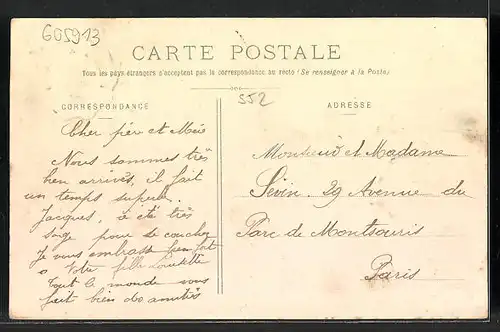 605913
CARTE POSTALE
Tous les pays étrangers n'acceptent pas la correspondance au recto (Se renseigner à la Poste)
552
CORRESPONDANCE
ADRESSE
Cher pèr et Mère
Nous sommes très
bien arrivés, il fait
un temps superbe.
Jacques, a été très
sage pour se coucher
Je vous embrasse bien fort
Votre fille
Tout le monde vous
fait bien des amitiés
Monsieur et Madame
Sevin. 29 Avenue du
Parc de Montsouris
Paris